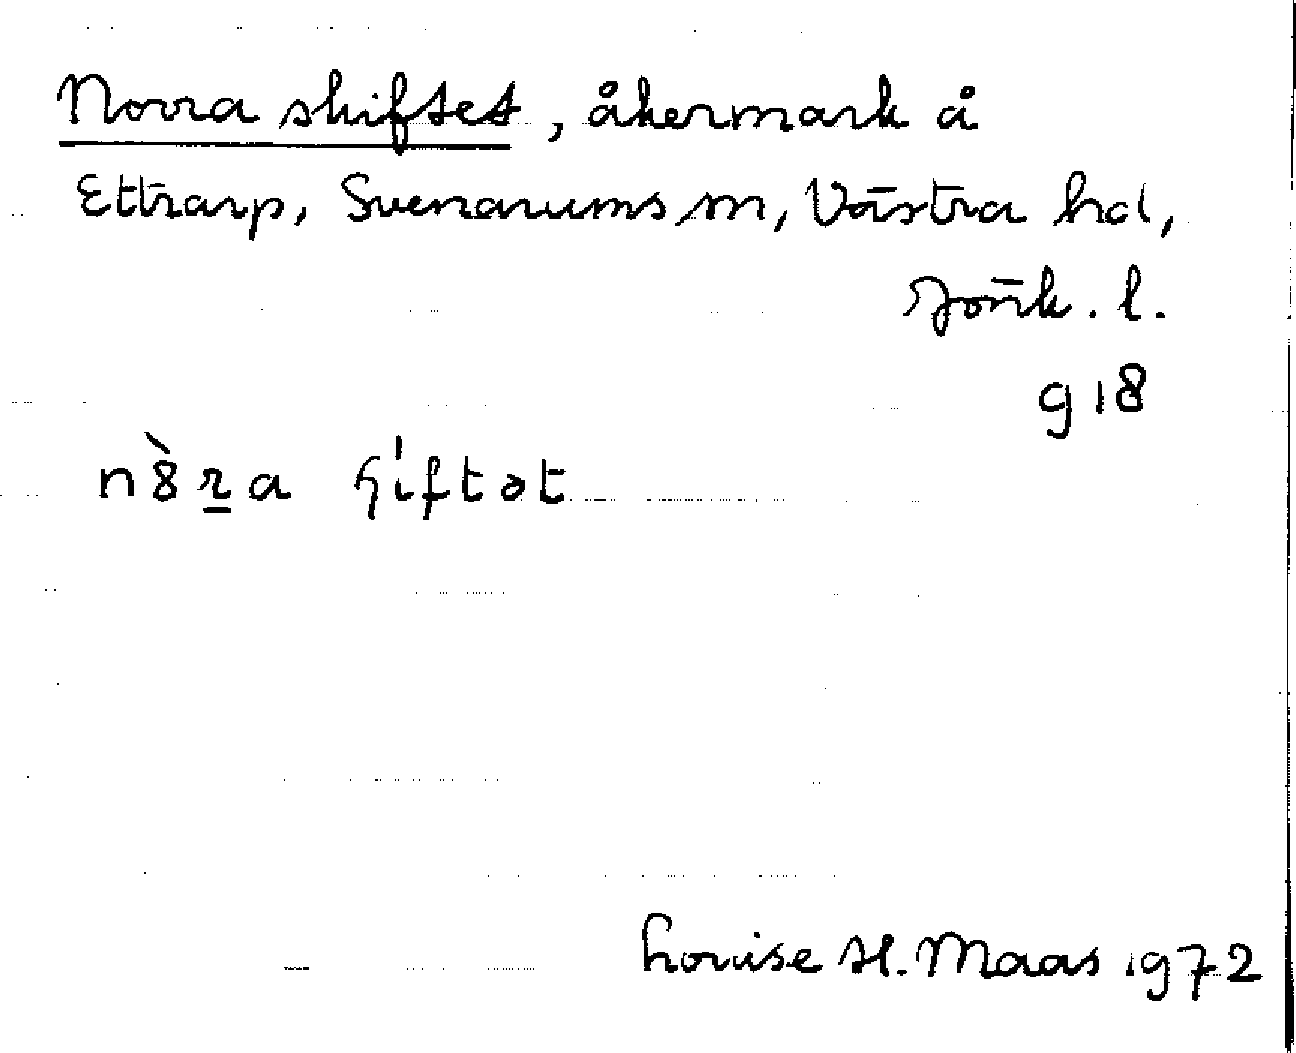 Norra skiftet, åkermark å
Ettrarp, Svenarums sn, Västra hd,
Jönk. l.
g 18
Louise H. Maas 1972